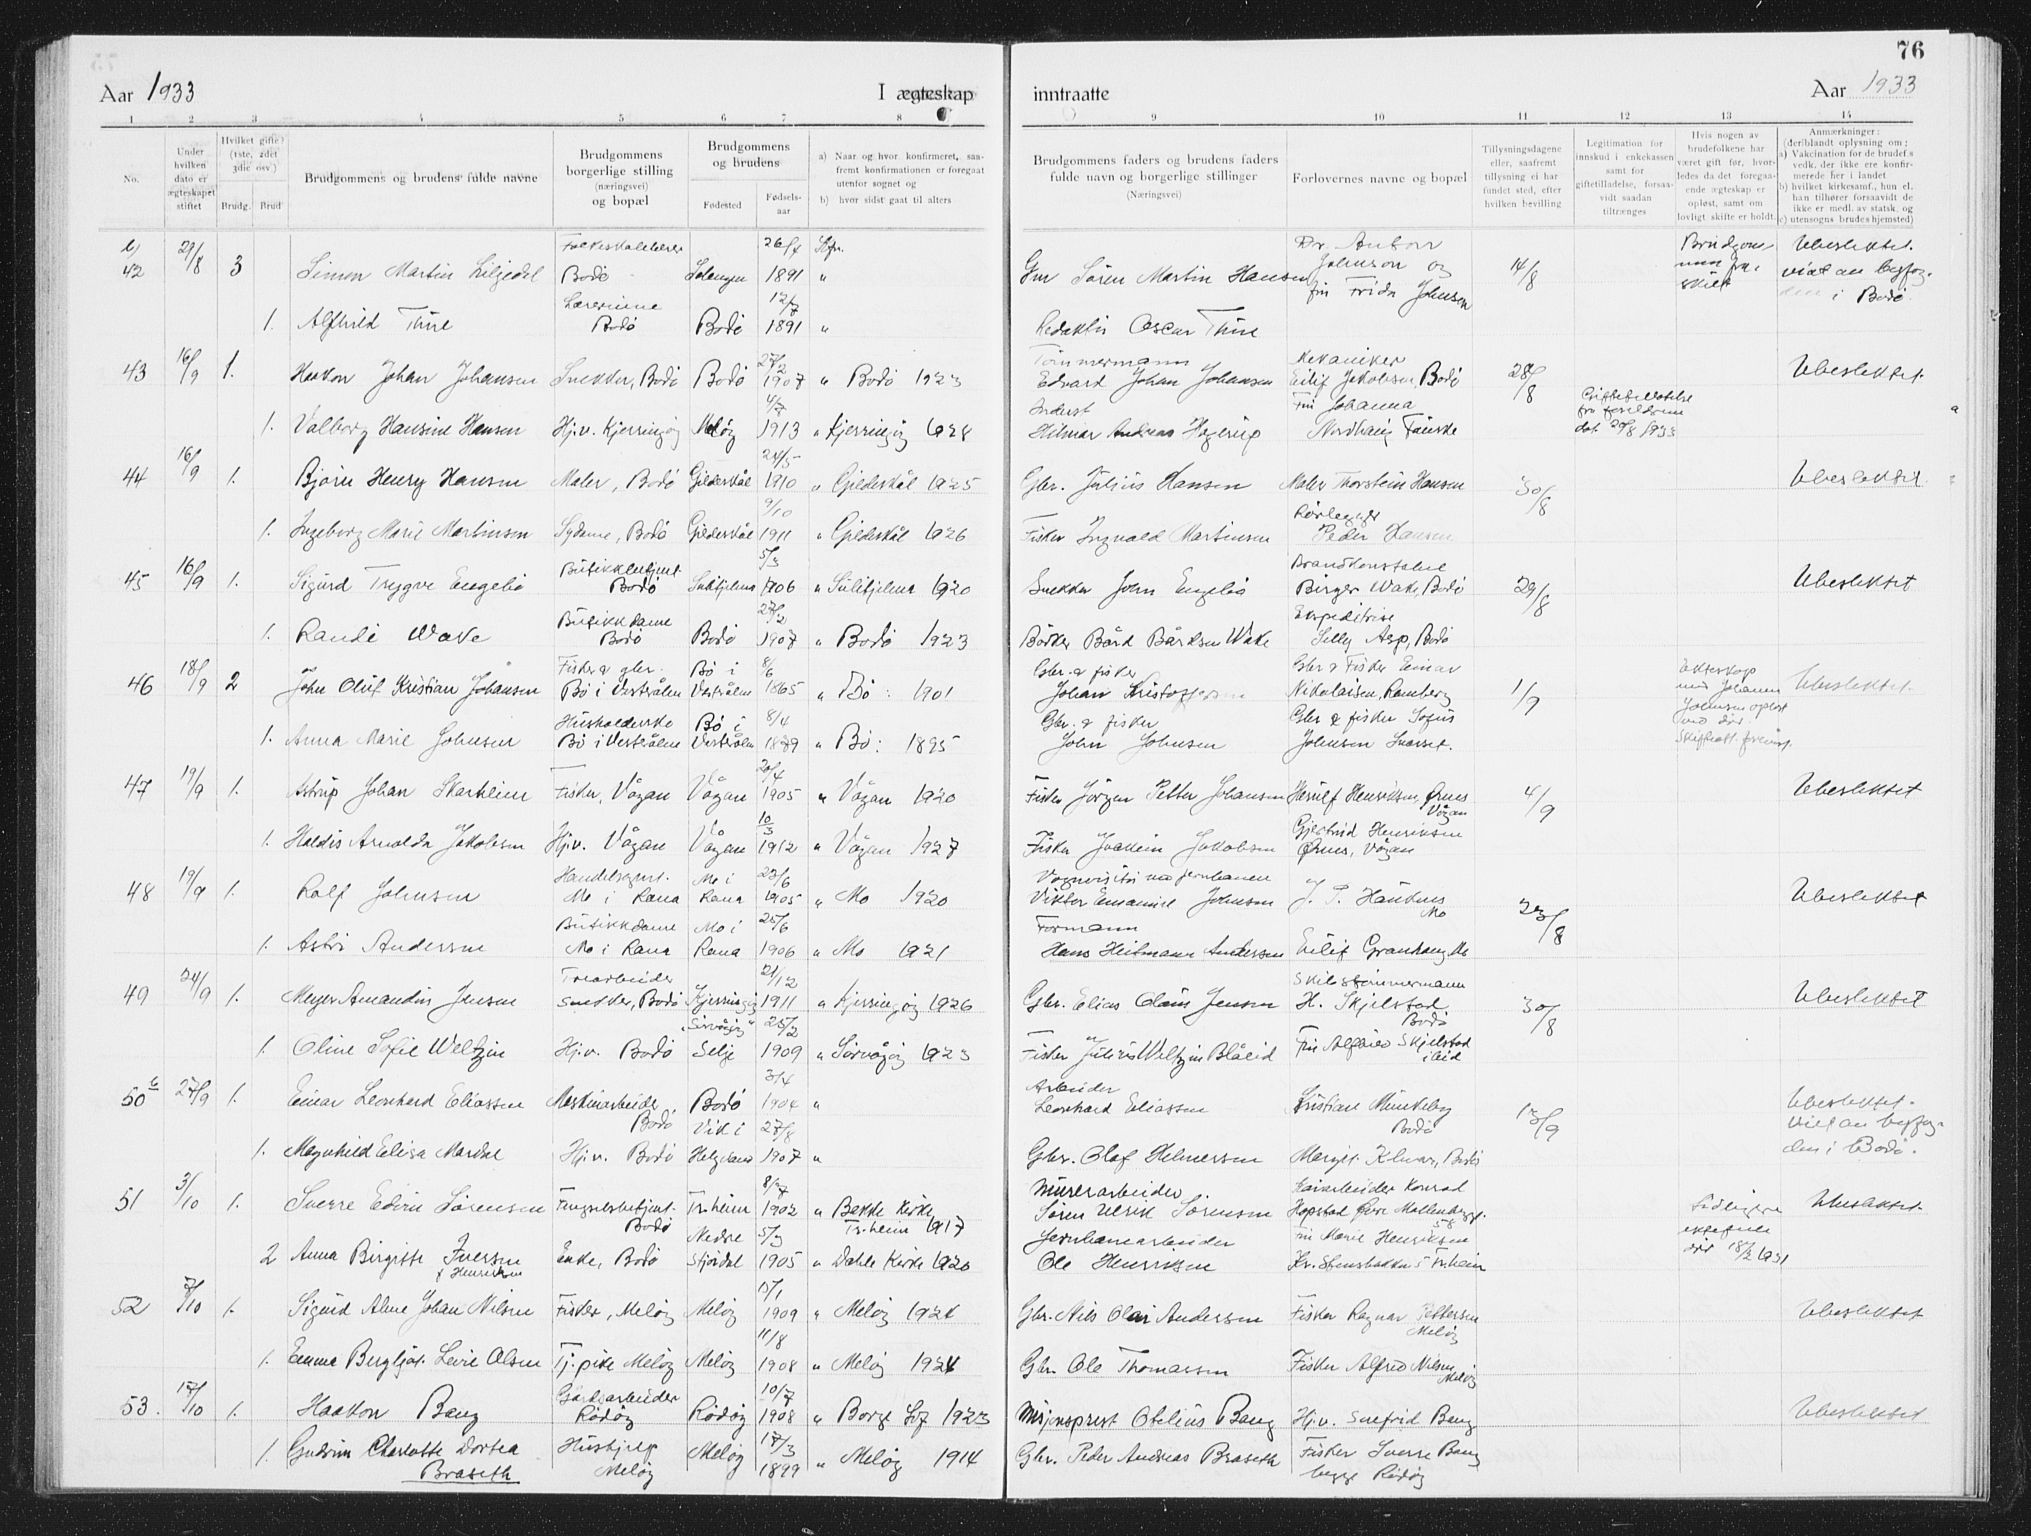 76
Aar 1933 I ægteskap inntraatte Aar 1933
1 2 3 4 5 6 7 8 9 10 11 12 13 14
No.
Under hvilken dato er ægteskapet stiftet
Hvilket gifte? (1ste, 2det 3die osv.)
Brudg. Brud
Brudgommens og brudens fulde navne
Brudgommens borgerlige stilling (næringsvei) og bopæl
Brudgommens og brudens
Fødested Fødsels-aar
a) Naar og hvor konfirmeret, saafremt konfirmationen er foregaat utenfor sognet og
b) hvor sidst gaat til alters
Brudgommens faders og brudens faders fulde navn og borgerlige stillinger
(Næringsvei)
Forlovernes navne og bopæl
Tillysningsdagene eller, saafremt tillysning ei har fundet sted, efter hvilken bevilling
Legitimation for innskud i enkekassen samt for giftetilladelse, forsaavidt saadan tiltrænges
Hvis nogen av brudefolkene har været gift før, hvorledes da det foregaaende ægteskap er opløst, samt om lovligt skifte er holdt.
Anmærkninger: (deriblandt oplysning om;
a) Vakcination for de brudef.s vedk. der ikke ere konfirmerede her i landet
b) hvilket kirkesamf., hun el. han tilhører forsaavidt de ikke er medl. av statsk. og
c) utensogns brudes hjemsted)
b/ 42 29/8 3 Simon Martin Liljedal Bodø 26/4 1891 " Gm Sören Martin Hansen Dr. Anton Johnson og fru Frida Johnson 14/8 Ubeslektet. viet av byfogden i Bodø.
1. Alfhild Thue Lærerinne Bodø Bodø 12/7 1891 " Redaktør Oscar Thue
43 16/9 1. Haakon Johan Johansen Snekker, Bodø Bodø 27/2 1907 " Bodø 1923 Tömmermann Edvard Johan Johansen Mekaniker Eilif Jakobsen, Bodø 28/8 Ubeslektet.
1. Valborg Hansine Hansen Hj.v. Kjerringøy Meløy 4/7 1913 " Kjerringøy 1928 Hilmar Andreas Hagerup Fru Johanna Nordhaug Fauske Giftetillatelse fra foreldrene dat. 29/8 1933
44 16/9 1. Bjarne Henry Hansen Maler, Bodø Gildeskål 24/5 1910 " Gildeskål 1925 Gbr. Julius Hansen Maler Thorstein Hansen 30/8 Ubeslektet.
1. Ingeborg Marie Martinsen Sydame, Bodø Gildeskål 9/10 1911 " Gildeskål 1926 Fisker Ingvald Martinsen Rørlegger Peder Hansen
45 16/9 1. Sigurd Trygve Engelid Butikkbetjent Bodø Sulitjelma 5/3 1906 " Sulitjelma 1920 Snekker John Engelid Brandkonstabel Birger Wake, Bodø 29/8 Ubeslektet
1. Randi Wake Butikkdame Bodø Bodø 27/2 1907 " Bodø 1923 Bødker Bård Bårdsen Wake Ekspeditrise Selly Asp, Bodø
46 18/9 2 John Oluf Kristian Johansen Fisker & gbr. Bø i Vesterålen Bø i Vesterålen 8/6 1865 " Bø: 1901 Gbr. & fisker Johan Kristoffersen Gbr & Fisker Einar Nikolaisen, Ramberg 1/9 Ekteskap med Johanna Johnsen opløst ved død. Ubeslektet.
1. Anna Marie Johnsen Husholderske Bø i Vesterålen Bø i Vesterålen 8/4 1879 " Bø: 1895 Gbr. & fisker John Johnsen Gbr & fisker Sofus Johnsen
47 19/9 1. Astrup Johan Skarheim Fisker, Vågan Vågan 20/4 1905 " Vågan 1920 Fisker Jörgen Petter Johansen Herulf Henriksen, Ørnes Vågan 4/9 Ubeslektet
1. Haldis Arnolda Jakobsen Hj.v. Vågan Vågan 10/3 1912 " Vågan 1927 Fisker Joakim Jakobsen Gjertrud Henriksen Ørnes, Vågan
48 19/9 1. Rolf Johnsen Handelsagent. Mo i Rana Mo i Rana 23/6 1905 " Mo 1920 Vognvisitør ved jernbanen Viktor Emanuel Johnsen J. P. Hauknes Mo 23/8 Ubeslektet
1. Astri Andersen Butikkdame Mo i Rana Mo i Rana 25/6 1906 " Mo 1921 Formann Hans Heitmann Andersen Eilif Granhaug, Mo
49 24/9 1. Meyer Amandus Jensen Trearbeider snekker, Bodø Kjerringøy 21/12 1911 " Kjerringøy 1926 Gbr. Elias Olaus Jensen Skibstømmermann H. Skjelstad Bodø 30/8 Ubeslektet
1. Oline Sofie Weltzin Hj.v. Bodø Selje 25/2 1909 " Sørvågøy 1923 Fisker Julius Weltzin Blåeid Fru Alfhild Skjelstad ibid
50 b 27/9 1. Einar Leonhard Eliassen Maskinarbeider Bodø Bodø 3/4 1904 " Arbeider Leonhard Eliassen Kristian Munkeby Bodø 13/9 Ubeslektet. Viet av byfogden i Bodø.
1. Magnhild Elisa Mardal Hj.v. Bodø Vik i Helgeland 27/8 1907 " Gbr. Olaf Helmersen Margit Klevar, Bodø
51 3/10 1. Sverre Edvin Sörensen Fengselsbetjent. Bodø Tr.heim 8/7 1902 " Bakke Kirke Tr.heim 1917 Murerarbeider Sören Ulrik Sörensen Kaiarbeider Konrad Hopstad Øvre Møllenberggt. 58 Tidligere ektefelle död 18/2 1931 Ubeslektet.
2 Anna Birgitte Iversen f. Henriksen Enke, Bodø Nedre Stjördal 5/3 1905 " Dahle Kirke 1920 Jernbanearbeider Ole Henriksen Fru Marie Henriksen Kr. Stensbakken 5 Tr.heim
52 7/10 1. Sigurd Alme Johan Nilsen Fisker, Meløy Meløy 15/1 1909 " Meløy 1924 Gbr. Nils Olai Andersen Fisker Ragnar Pettersen Meløy Ubeslektet
1. Emma Bergljot Levie Olsen Tj.pike Meløy Meløy 11/8 1908 " Meløy 1924 Gbr. Ole Thomassen Fisker Alfred Nilsen, Meløy
53. 17/10 1. Haakon Bang Gårdsarbeider Rødøy Rødøy 10/7 1908 " Borge Lof 1923 Misjonsprest Otelius Bang Hj.v. Snefrid Bang Ubeslektet
1. Gudrun Charlotte Dortea Braseth Hushjelp Meløy Meløy 17/3 1899 " Meløy 1914 Gbr. Peder Andreas Braseth Fisker Sverre Bang begge Rødøy